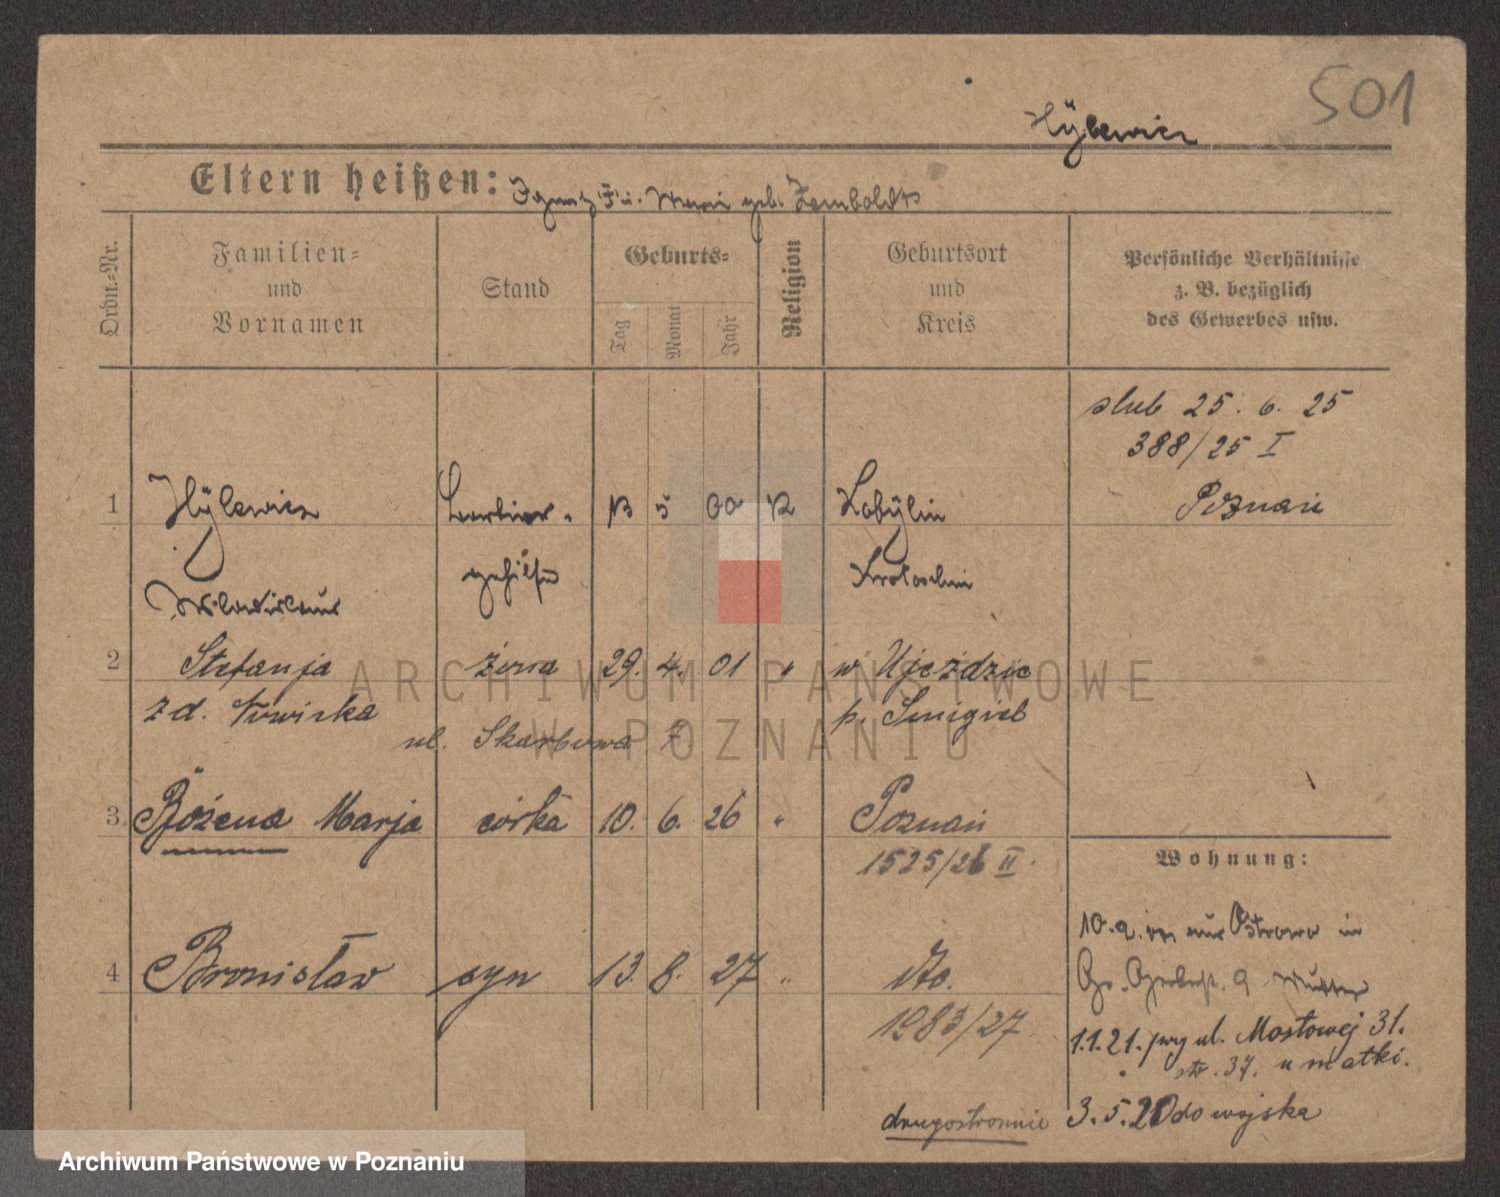 501
Hÿlewicz
Eltern heißen: Ignatz u. Maria geb. Remboldt
Ordn.-Nr.
Familien- und Vornamen
Stand
Geburts-
Tag
Monat
Jahr
Religion
Geburtsort und Kreis
Persönliche Verhältnisse z. B. bezüglich des Gewerbes usw.
slub 25. 6. 25
388/25 I
Poznań
1 Hÿlewicz Barbier- 13 5 00 K Kobÿlin
gehilfe Krotoschin
Wladislaus
2 Stefanja żona 29. 4. 01 " w Ujeździe
zd. Nowicka p. Smigiel
ul. Skarbowa 7
3. Bożena Marja córka 10. 6. 26 " Poznań
1525/26 II.
Wohnung:
4 Bronisław syn 13. 8. 27 " dto.
1983/27
10. 9. aus Ostrowo in
Gr. Gerberst. 9 Mutter
1.1.21. przy ul. Mostowej 31.
str. 37. u matki.
drugostronnie 3. 5. 21 do wojska
ARCHIWUM PAŃSTWOWE
W POZNANIU
Archiwum Państwowe w Poznaniu